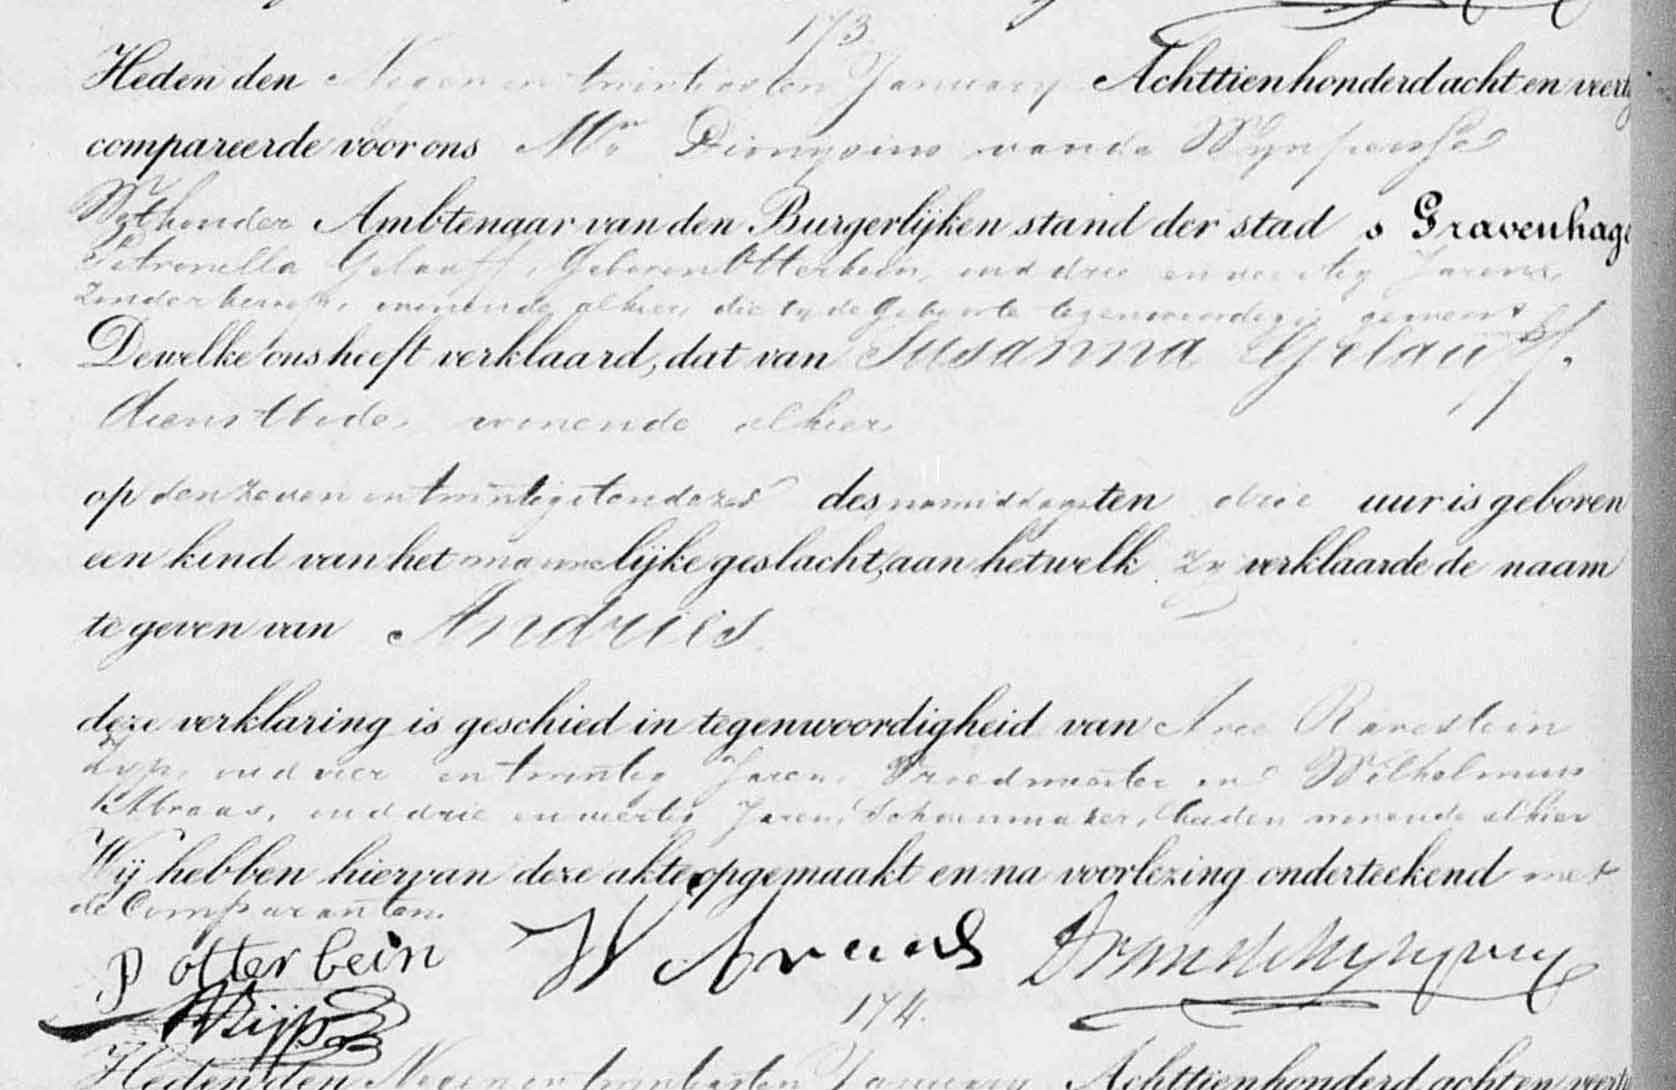 173
Heden den Negen en twintigsten January Achttienhonderd acht en veertig
compareerde voor ons Mr Dionysius van de Wynpersse
Wethouder Ambtenaar van den Burgerlijken stand der stad s Gravenhage
Petronella Gelauff, Geboren Otterbein, oud drie en veertig Jaren,
Zonder beroep, wonende alhier, die by de Geboorte tegenwoordig is geweest
Dewelke ons heeft verklaard, dat van Susanna Gelauff,
dienstbode, wonende alhier,
op den zeven en twintigsten dezer des namiddags ten drie uur is geboren
een kind van het mannelijke geslacht, aan hetwelk Zy verklaarde de naam
te geven van Andries.
deze verklaring is geschied in tegenwoordigheid van Arie Ravestein
Zyp, oud vier en twintig Jaren, Broodmeester en Wilhelmus
Abraas, oud drie en veertig Jaren, Schoenmaker, beiden wonende alhier
Wij hebben hiervan deze akte opgemaakt en na voorlezing onderteekend met
de Comparanten.
P otterbein W Abraas DvandeWynpersse
ARZijp
174.
Heden den Negen en twintigsten January Achttienhonderd acht en veertig